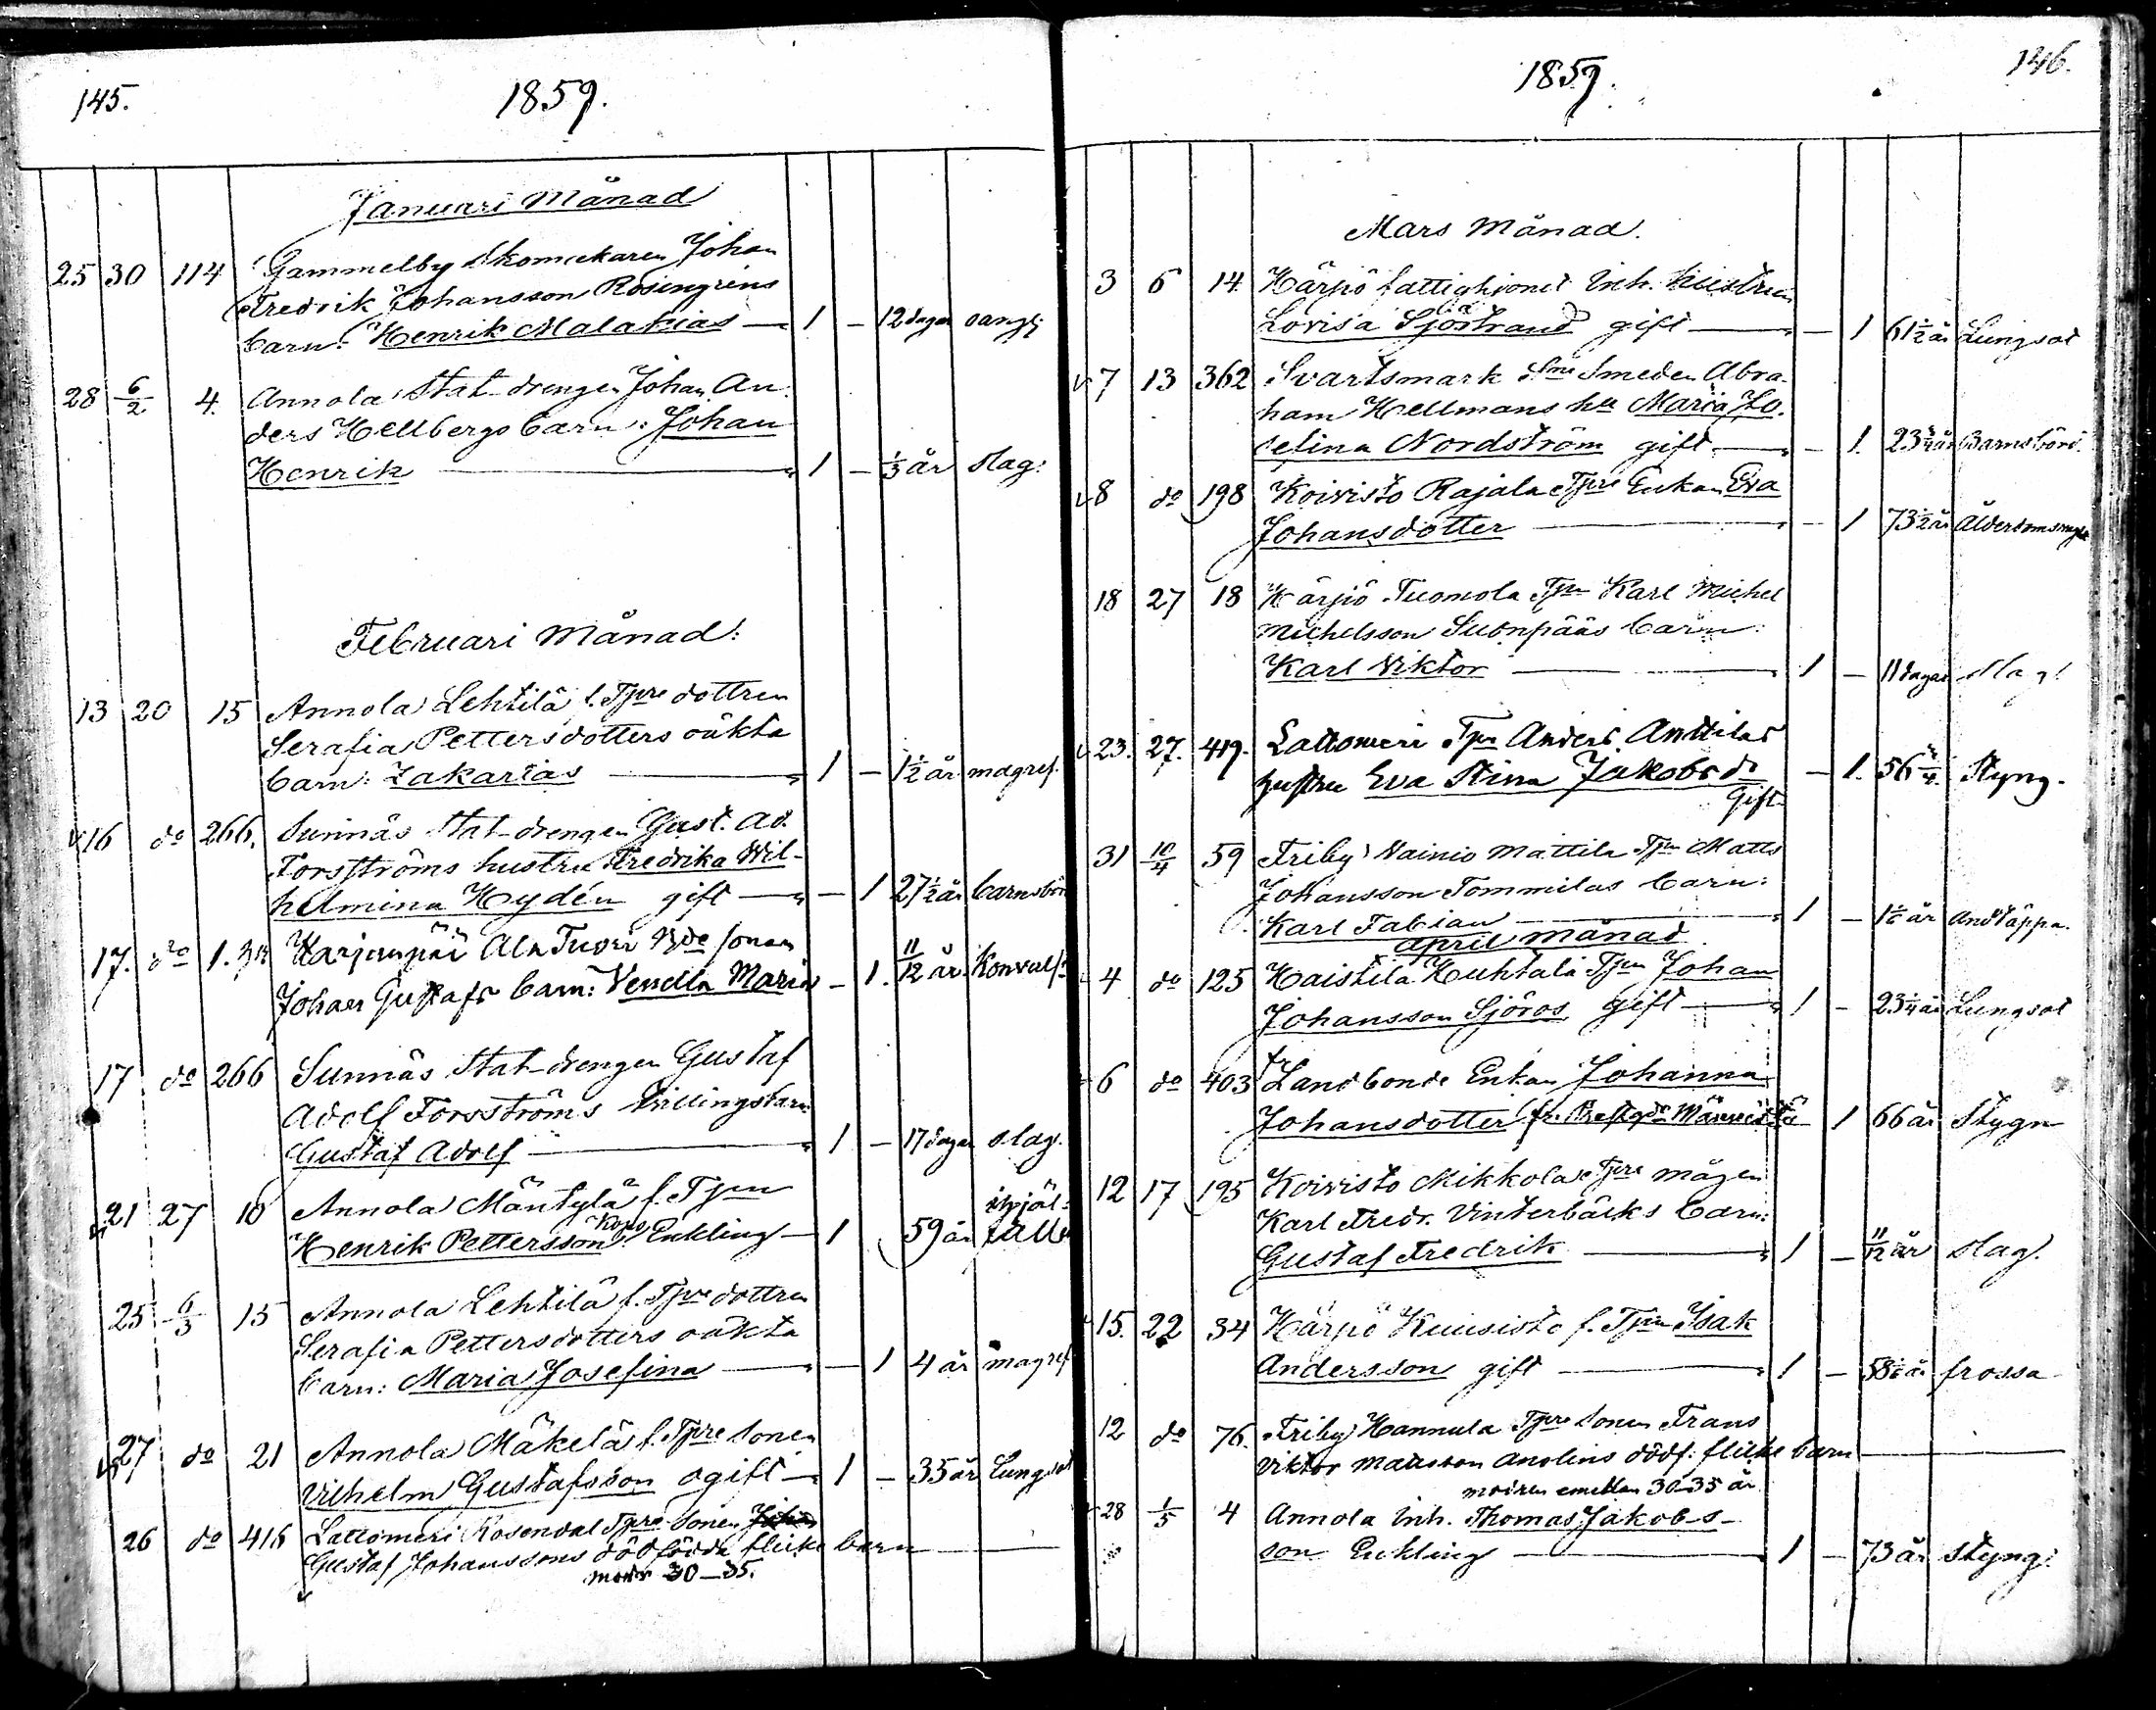 145.
1859.
Januari Månad
25 30 114 Gammelby Skomakaren Johan
Fredrik Johansson Rosengrens
barn: Henrik Malakias — 1 — 12 dagar oangf;
28 6/2 4. Annola Stat-drengen Johan An-
ders Hellbergs barn: Johan
Henrik — 1 — 1/3 år slag:
Februari Månad:
13 20 15 Annola Lehtilä f. Tpre dottren
Serafia Pettersdotters oäkta
barn: Zakarias — 1 — 1 1/2 år magref.
16 do 266. Sunnäs Stat-drengen Gust. Ad.
Forsströms hustru Fredrika Wil-
helmina Hydén gift — — 1 27 1/2 år barnsbörd
17. do 1. Harjunpää Ala Tuori Bde sonen
Johan Gustafs barn: Vendla Maria — 1. 11/12 år Konvuls:
17 do 266 Sunnäs Stat-drengen Gustaf
Adolf Forsströms trillingsbarn
Gustaf Adolf — 1 — 17 dagar slag.
21 27 10 Annola Mäntylä f. Tpn
Henrik Pettersson Enkling — 1 59 år ihjäl-
fallen
25 6/3 15 Annola Lehtilä f. Tpre dottren
Serafia Pettersdotters oäkta
barn: Maria Josefina — — 1 4 år magref
27 do 21 Annola Mäkelä f. Tpre Sonen
Vilhelm Gustafsson ogift — 1 — 35 år Lungsot
26 do 418 Lattomeri Rosendal Tpre Sonen Johan
Gustaf Johanssons dödfödda flicke barn —
modr 30–35.
1859.
146.
Mars Månad.
3 6 14 Härpö fattighjonet Inh. hustrun
Lovisa Sjöstrand gift — — 1 61 1/2 år Lungsot
7 13 362 Svartsmark Sme Smeden Abra-
ham Hellmans hu Maria Jo-
sefina Nordström gift — — 1. 23 3/4 år Barnsbörd.
8 do 198 Koivisto Rajala Tpre Enkan Eva
Johansdotter — — 1 73 1/2 år Ålderdoms
18 27 18 Härpö Tuomola Tpn Karl Michel
Michelsson Suonpääs barn:
Karl Viktor — 1 — 11 dagar slag:
23. 27. 419. Lattomeri Tpn Anders Anttilas
hustru Eva Stina Jakobsdr — 1. 56 3/4. Styng.
Gift
31 10/4 59 Friby Vainio Mattila Tpn Matts
Johansson Tommilas barn:
Karl Fabian — 1 — 1 1/6 år Andtäppa.
April månad
4 do 125 Haistila Huhtala Tpn Johan
Johansson Sjöros gift — 1 — 23 1/4 år Lungsot
6 do 403 Landbonde Enkan Johanna
Johansdotter fr. Prestgdn Männistö 1 66 år Stygn
12 17 195 Koivisto Mikkola Tpre mågen
Karl Fredr. Vinterbäcks barn:
Gustaf Fredrik — 1 — 11/12 år slag.
15. 22 34 Härpö Kuusisto f. Tpn Isak
Andersson gift — 1 — 58 1/6 år frossa
12 do 76. Friby Hannula Tpre Sonen Frans
Viktor Mattsson Anolins dödf: flicke barn —
modren emellan 30–35 år
28 1/5 4 Annola Inh. Thomas Jakobs-
son Enkling — 1 — 73 år styng: